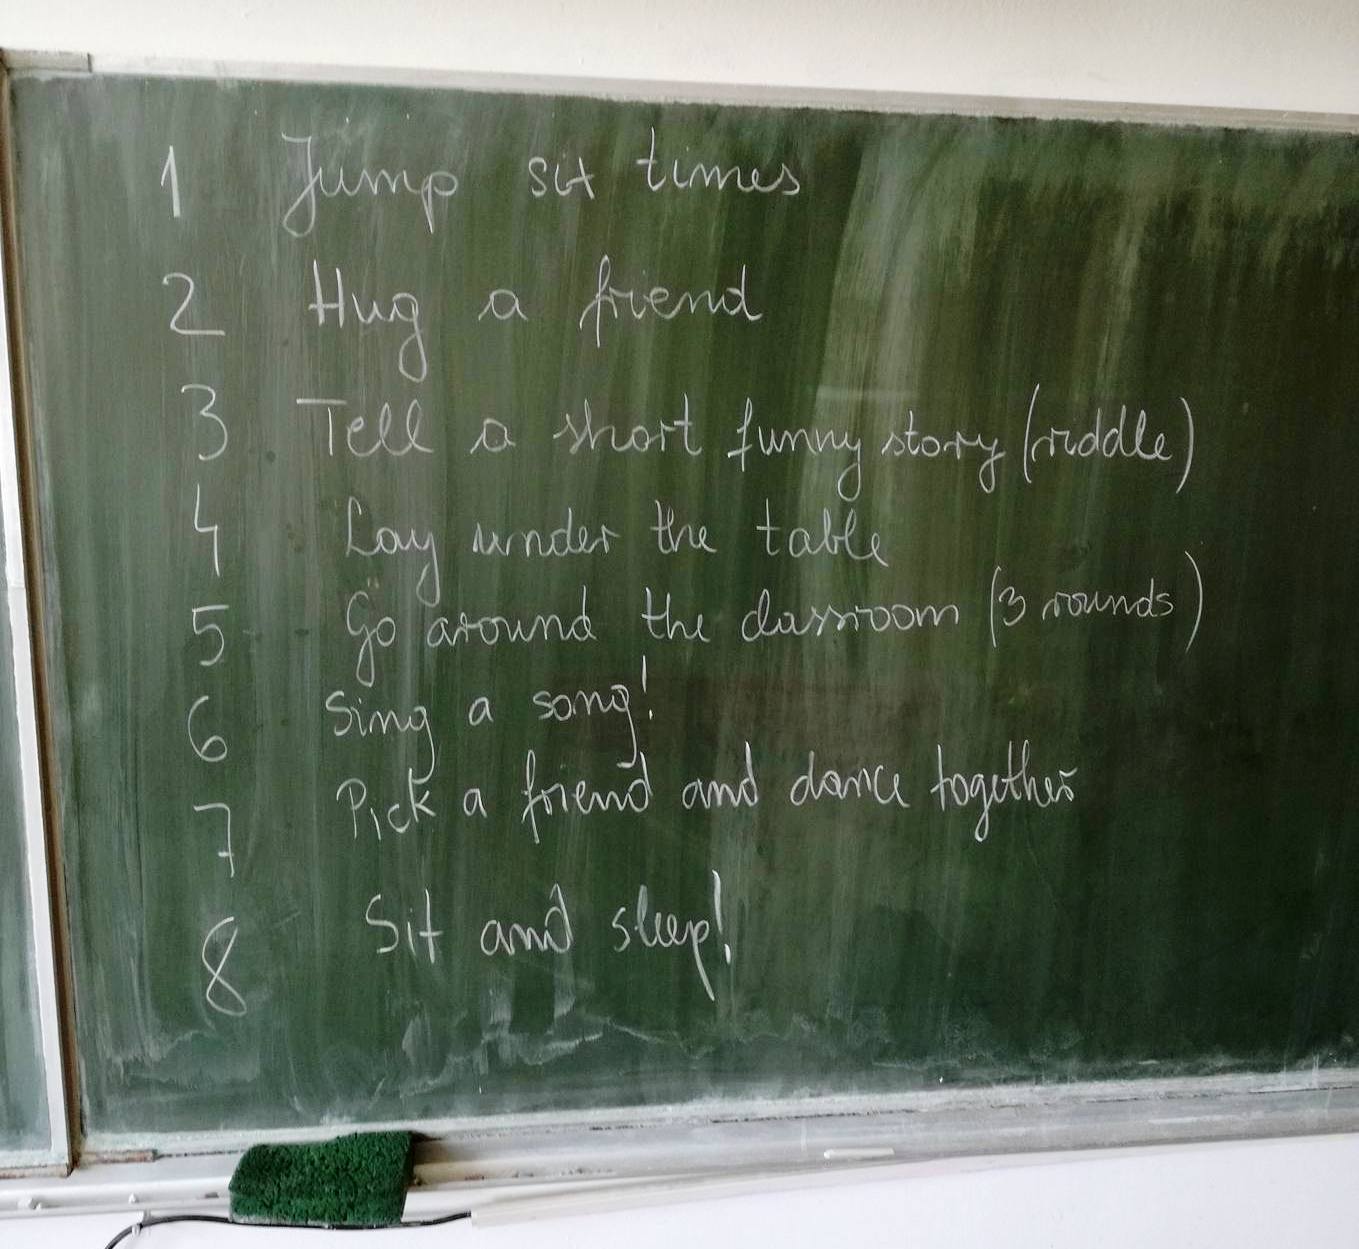 1 Jump six times
2 Hug a friend
3 Tell a short funny story (riddle)
4 Lay under the table
5 Go around the classroom (3 rounds)
6 Sing a song!
7 Pick a friend and dance together
8 Sit and sleep!